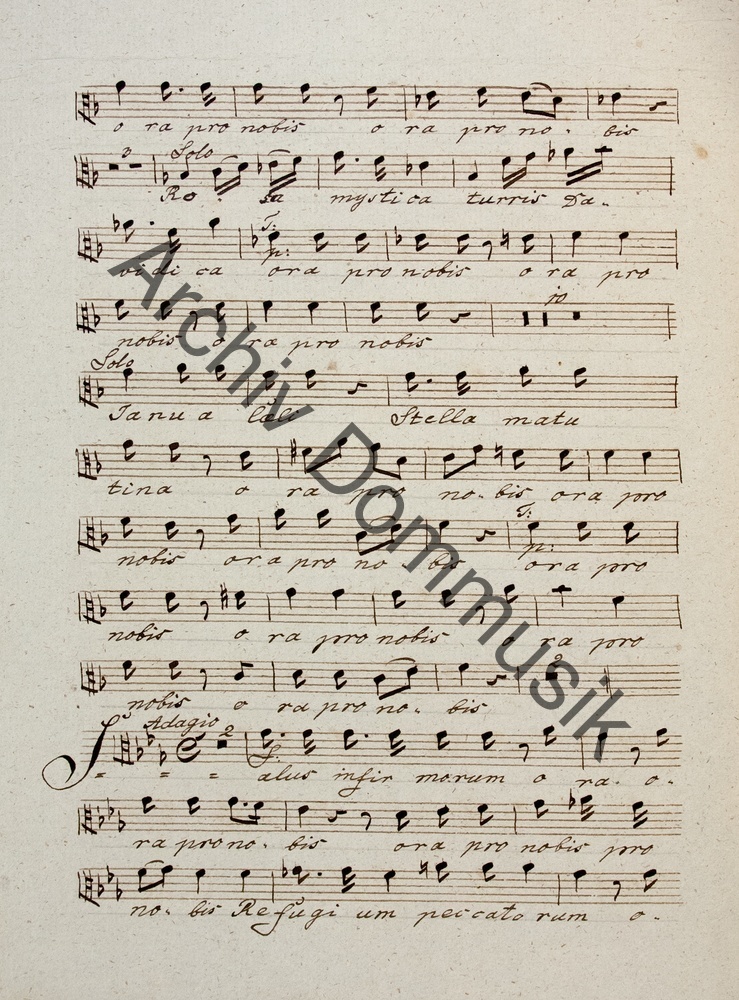 o ra pro nobis o ra pro no - bis
3 Solo
Ro - sa mystica turris Da -
T:
p:
vidica ora pro nobis o ra pro
10
nobis o ra pro nobis
Solo
Janu a Cæli Stella matu
tina o ra pro no - bis ora pro
T:
p:
nobis ora pro no bis ora pro
nobis o ra pro nobis o ra pro
nobis o ra pro no - bis
Adagio 2
S = = = alus infir morum o ra - o -
ra pro no - bis ora pro nobis pro
no - bis Refugi um peccato rum o -
Archiv Dommusik